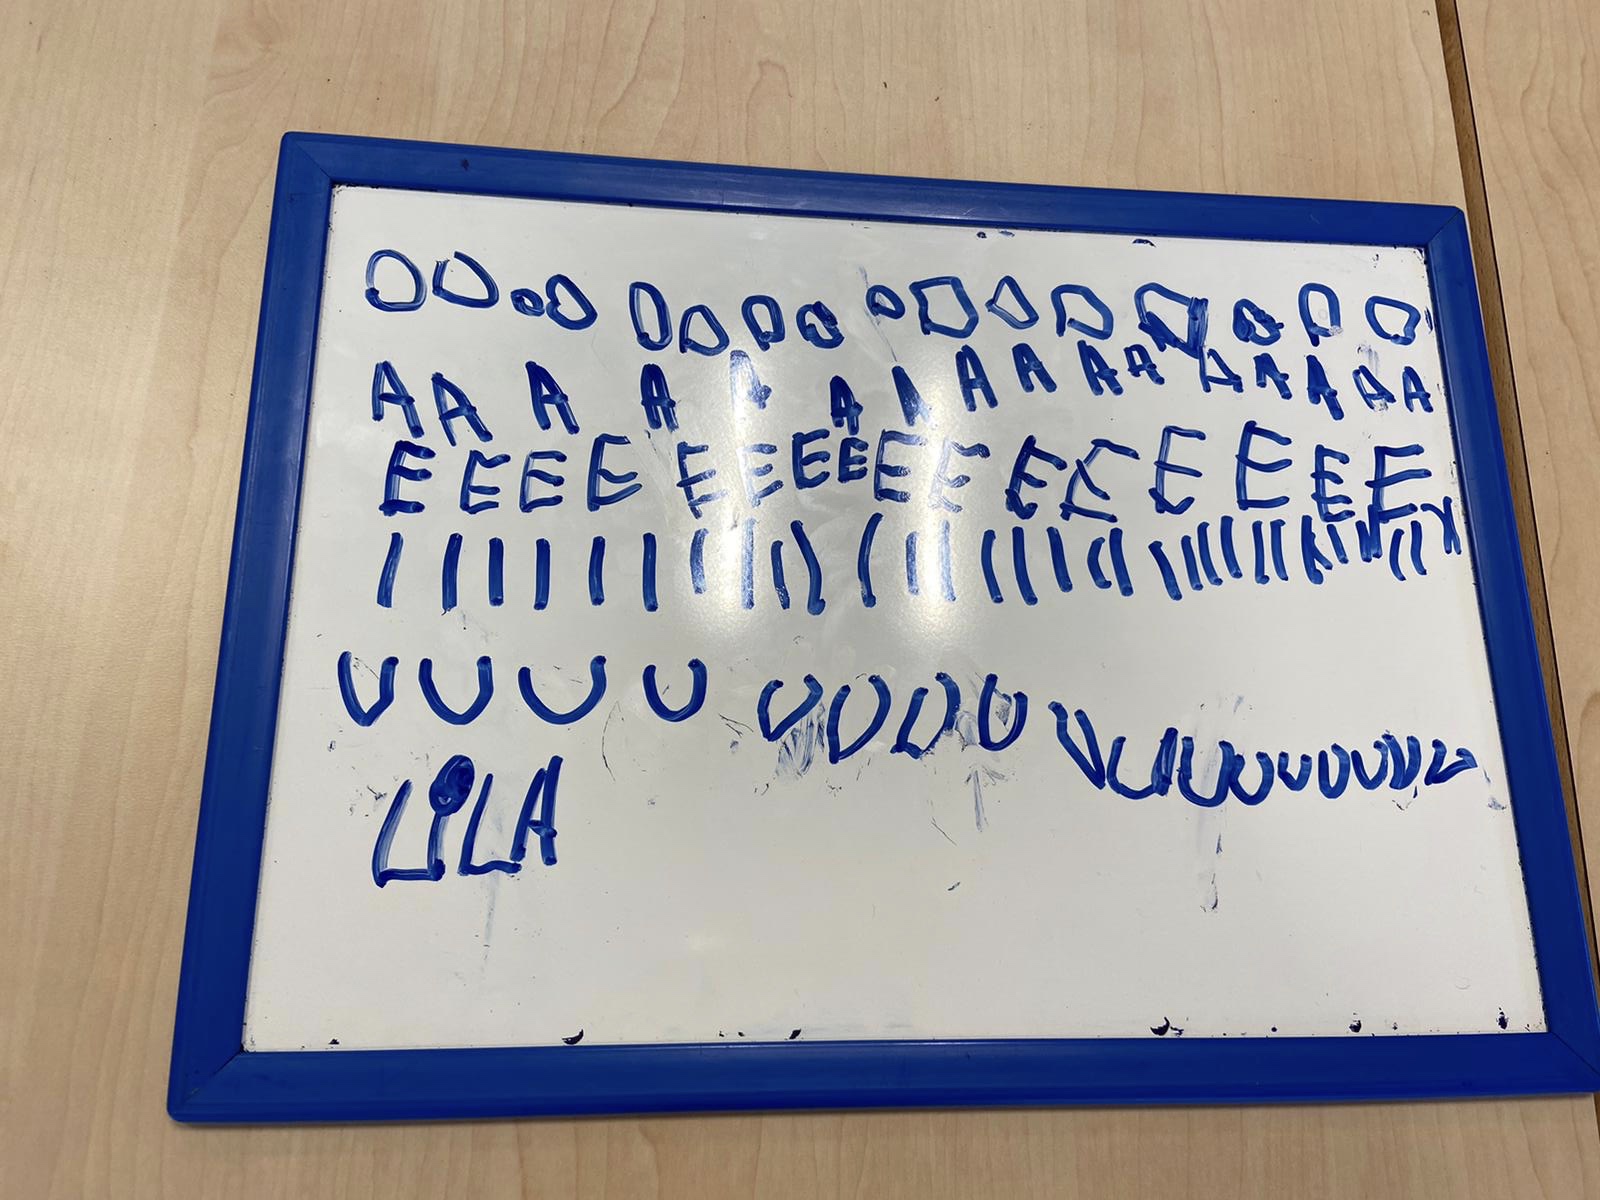 O O O O O O O O O O O O O O O O
A A A A A A A A A A A A A A A A
E E E E E E E E E E E E E E E E
I I I I I I I I I I I I I I I I I I I I I I I I I I I I
U U U U U U U U U U U U U U U U U U
LiLA